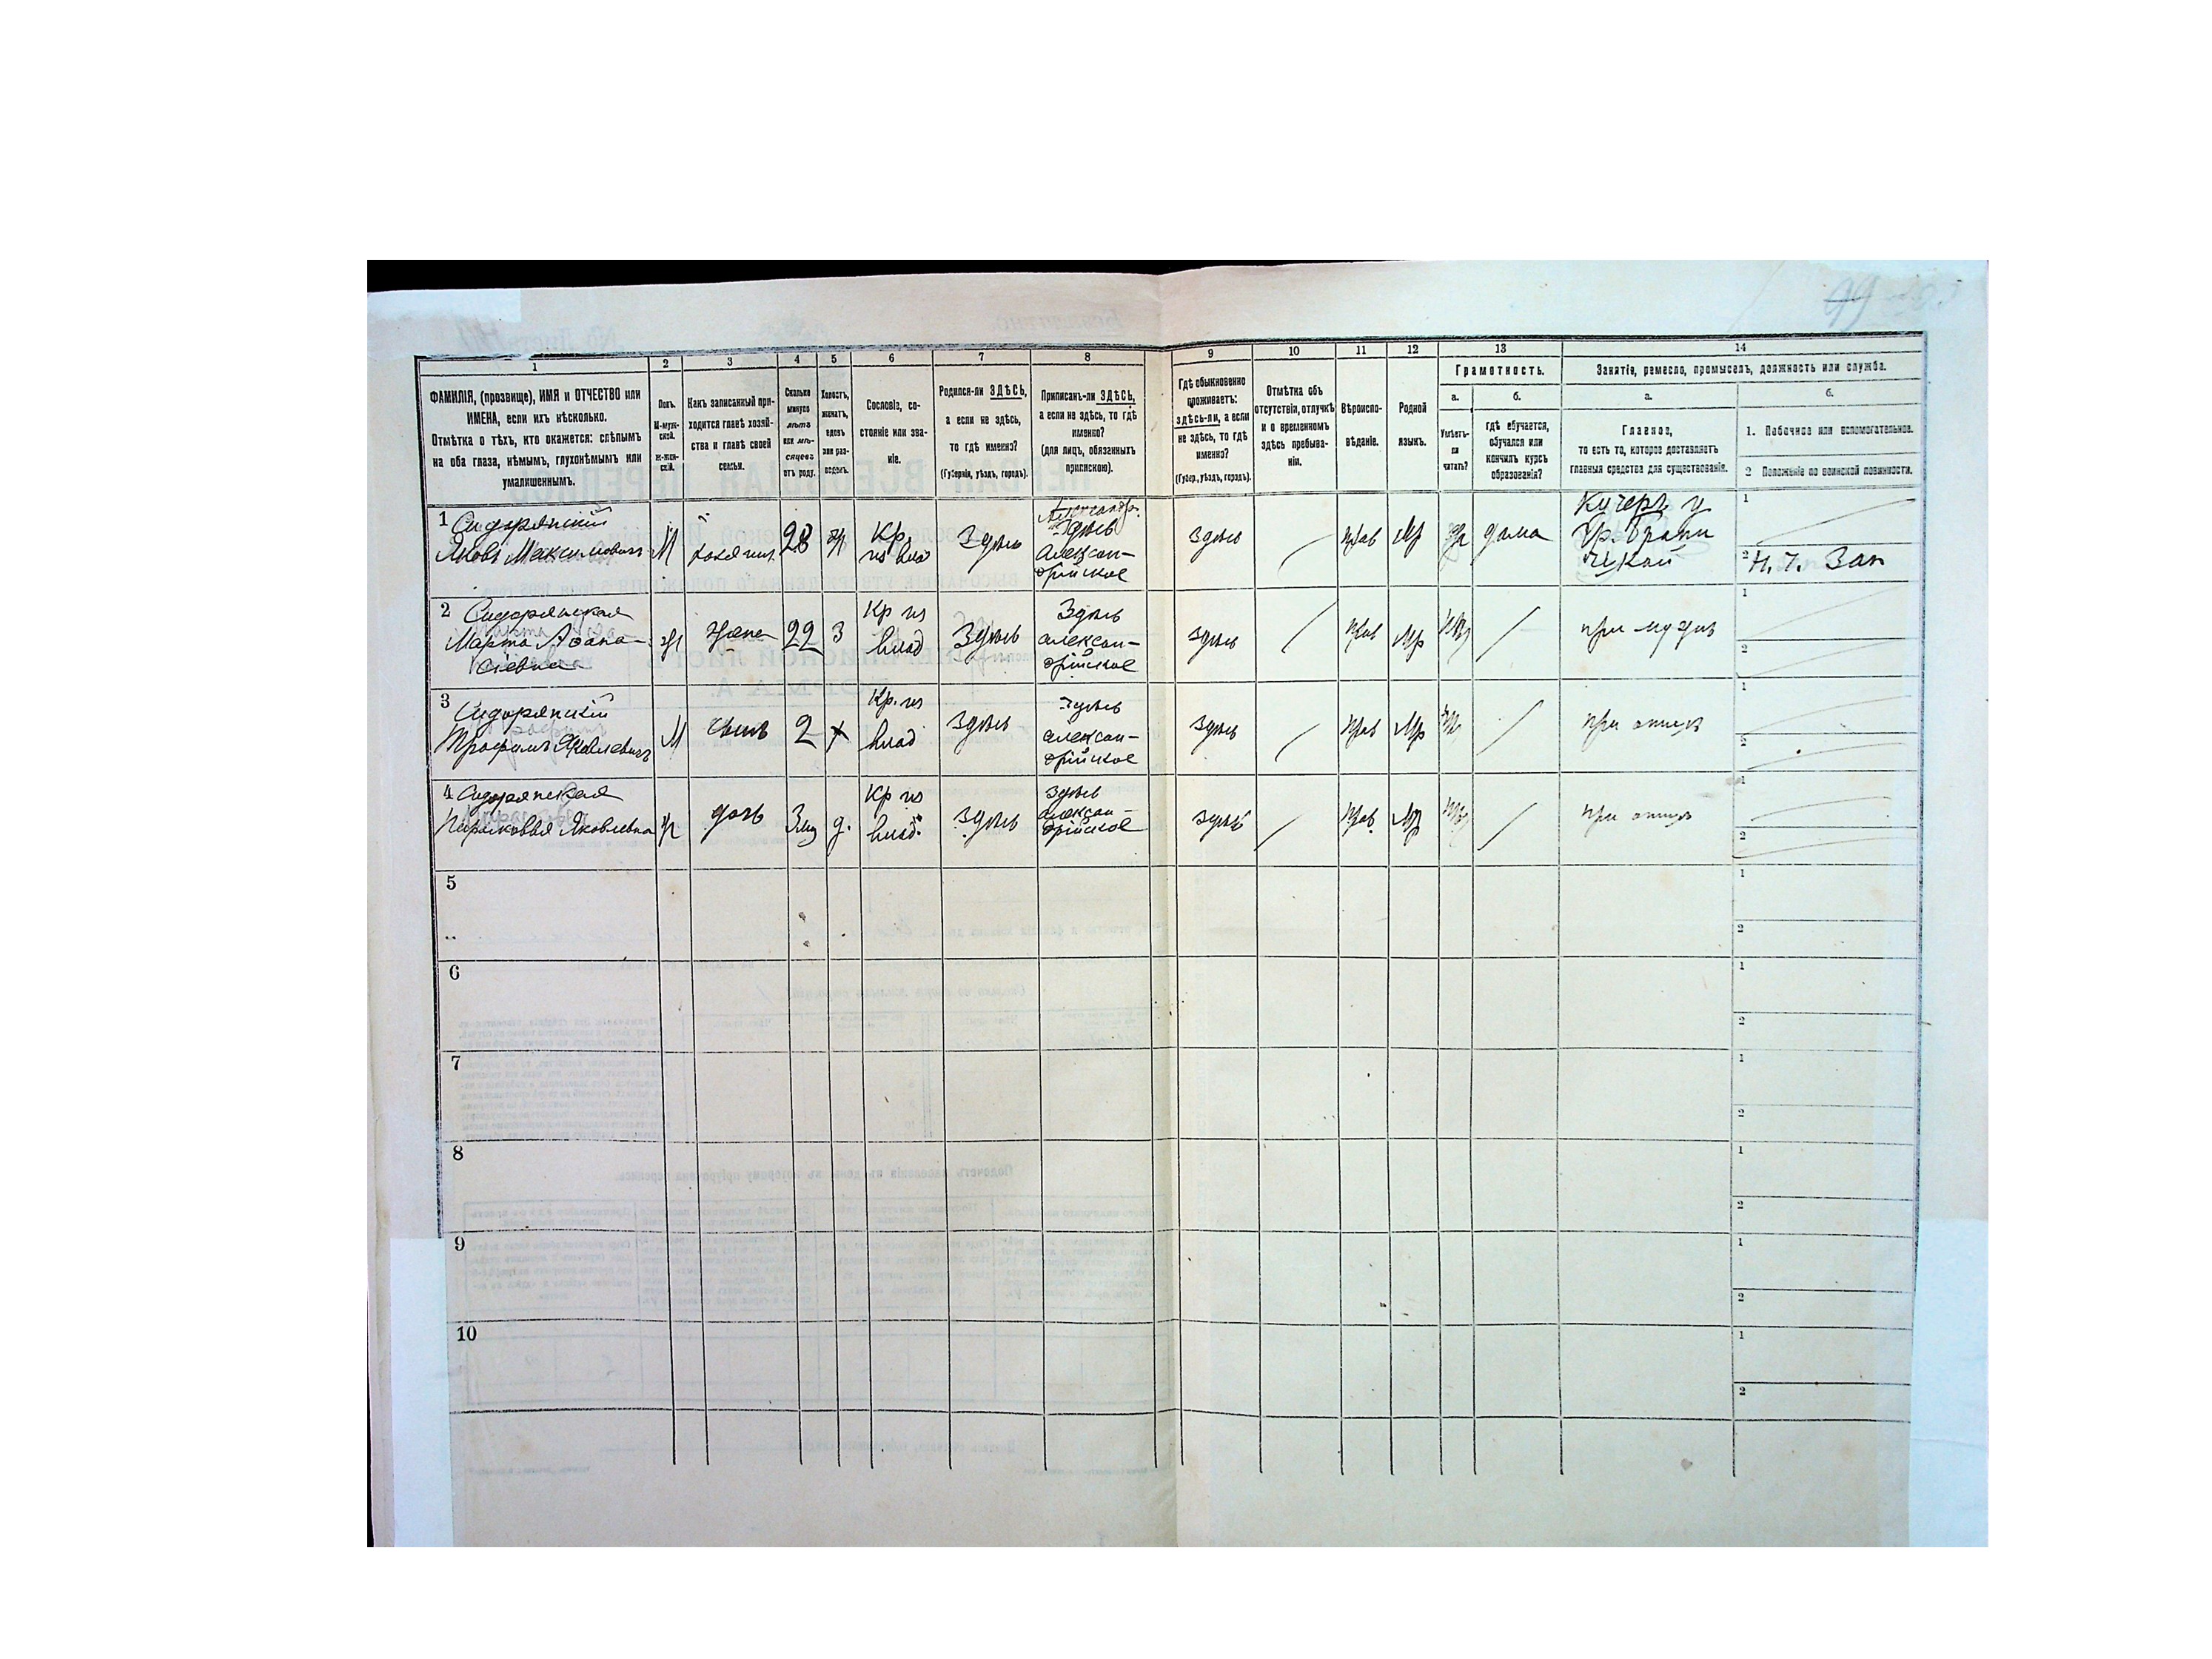 1
2
3
4
5
6
7
8
9
10
11
12
13
14
ФАМИЛІЯ, (прозвище), ИМЯ и ОТЧЕСТВО или
ИМЕНА, если ихъ нѣсколько.
Отмѣтка о тѣхъ, кто окажется: слѣпымъ
на оба глаза, нѣмымъ, глухонѣмымъ или
умалишеннымъ.
Полъ.
М-муж-
ской.
Ж-жен-
скій.
Какъ записанный при-
ходится главѣ хозяй-
ства и главѣ своей
семьи.
Сколько
минуло
лѣтъ
или мѣ-
сяцевъ
отъ роду.
Холостъ,
женатъ,
вдовъ
или раз-
веденъ.
Сословіе, со-
стояніе или зва-
ніе.
Родился-ли ЗДѢСЬ,
а если не здѣсь,
то гдѣ именно?
(Губернія, уѣздъ, городъ).
Приписанъ-ли ЗДѢСЬ,
а если не здѣсь, то гдѣ
именно?
(для лицъ, обязанныхъ
припискою).
Гдѣ обыкновенно
проживаетъ:
здѣсь-ли, а если
не здѣсь, то гдѣ
именно?
(Губер., уѣздъ, городъ).
Отмѣтка объ
отсутствіи, отлучкѣ
и о временномъ
здѣсь пребыва-
ніи.
Вѣроиспо-
вѣданіе.
Родной
языкъ.
Грамотность.
а.
Умѣетъ-
ли
читать?
б.
гдѣ обучается,
обучался или
кончилъ курсъ
образованія?
Занятіе, ремесло, промыселъ, должность или служба.
а.
Главное,
то есть то, которое доставляетъ
главныя средства для существованія.
б.
1. Побочное или вспомогательное.
2 Положеніе по воинской повинности.
1 Сидорянскій
Яковъ Максимовичъ
М
хозяинъ
28
ж
Кр.
из влад
Здѣсь
Здѣсь
алексан-
дрійское
здѣсь
прав
Мр
да
дома
Кучеръ у
Гр. Брани
цкой
1
2 Н. Ч. Зап
2 Сидорянская
Марта Афана-
сіевна
ж
жена
22
З
Кр из
влад
Здѣсь
Здѣсь
алексан-
дрійское
здѣсь
прав
Мр
при мужѣ
1
2
3 Сидорянскій
Трофимъ Яковлевичъ
М
сынъ
2
х
Кр. из
влад
Здѣсь
Здѣсь
алексан-
дрійское
здѣсь
прав
Мр
при отцѣ
1
2
4 Сидорянская
Парасковья Яковлевна
ж
дочь
3 мц
д.
Кр из
влад.
Здѣсь
здѣсь
алексан-
дрійское
здѣсь
прав
Мр
при отцѣ
1
2
5
1
2
6
1
2
7
1
2
8
1
2
9
1
2
10
1
2